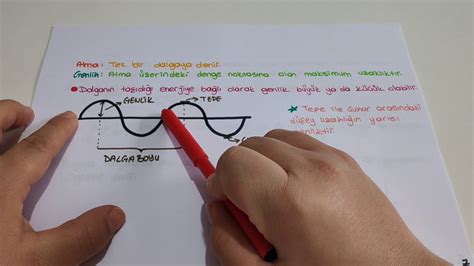 Atma: Tek bir dalgaya denir.
Genlik: Atma üzerindeki denge noktasına olan maksimum uzaklıktır.
Dalganın taşıdığı enerjiye bağlı olarak genlik büyük ya da küçük olabilir.
GENLİK
TEPE
★ Tepe ile çukur arasındaki
düşey uzaklığın yarısı
genliktir.
DALGA BOYU